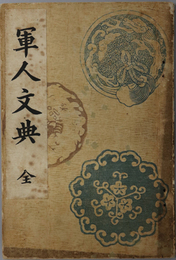 軍人文典 全